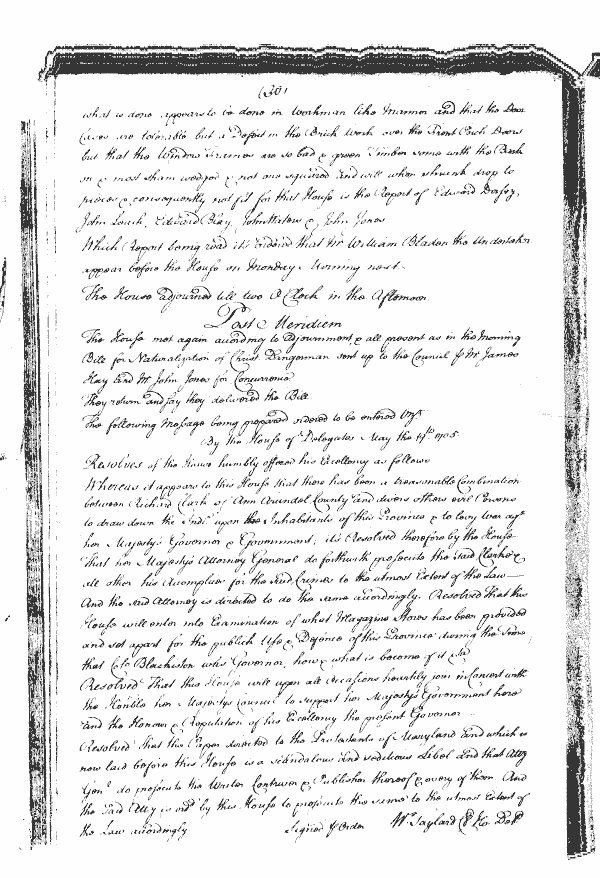 (30)
what is done appears to be done in Workman like Manner and that the Door
Cases are tolerable but a Defect in the Brick Work over the Front Porch Doors
but that the Window Frames are so bad & green Timber some with the Bark
on & most sham wedged & not one squared and will when shrunk drop to
pieces & consequently not fit for that House is the Report of Edward Dorsey,
John Leach, Edward Hay, John &, John Jones
Which Report being read it's ordered that Mr William Bladen the Undertaker
appear before the House on Monday Morning next.
The House adjourned till two O Clock in the Afternoon.
Post Meridiem
The House met again according to adjournment & all present as in the Morning
Bill for Naturalization of Christ. Dingerman sent up to the Council p Mr James
Hay and Mr John Jones for Concurrence
They return and say they delivered the Bill.
The following Message being prepared ordered to be entered Vizt
By the House of Delegates May the 1705.
Resolves of the House humbly offered his Excellency as follows
Whereas it appears to this House that there has been a treasonable Combination
between Richard Clark of Ann Arundel County and divers others evil Persons
to draw down the Inds upon the Inhabitants of this Province & to levy War agt
her Majesty's Governor & Government, it's Resolved therefore by the House
That her Majesty's Attorney General do forthwith prosecute the said Clarke &
all other his Accomplices for the said Crimes to the utmost Extent of the Law
And the said Attorney is directed to do the same accordingly. Resolved that this
House will enter into Examination of what Magazine Stores has been provided
and set apart for the publick Use & Defence of this Province during the Time
that Colo Blackiston was Governor, how & what is become of it &c
Resolved That this House will upon all Occasions heartily join in Consort with
the Honble her Majesty's Council to support her Majesty's Government here
and the Honour & Reputation of his Excellency the present Governor
Resolved that this Paper directed to the Protestants of Maryland and which is
now laid before this House is a Scandalous and seditious Libel and that Atty
Genl do prosecute the Writer Contriver & Publisher thereof & every of them And
the said Atty is ordd by this House to prosecute the same to the utmost Extent of
the Law accordingly Signed p Order W. Taylard Cl Ho Del